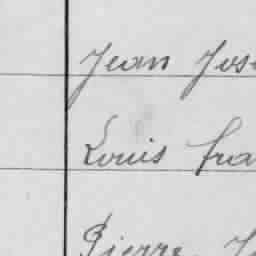 Jean Jos
Louis fra
Pierre J